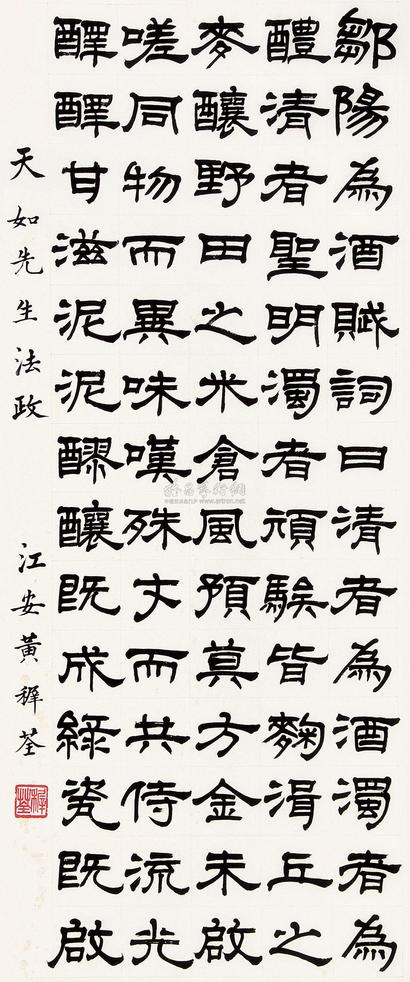 鄒陽為酒賦詞曰清者為酒濁者為
醴清者聖明濁者頑騃皆麴湒丘之
麥釀野田之米倉風預莫方金未啟
嗟同物而異味嘆殊才而共侍流光
醳醳甘滋泥泥醪釀既成綠瓷既啟
天如先生法政 江安黃穉荃
穉荃
www.artron.net